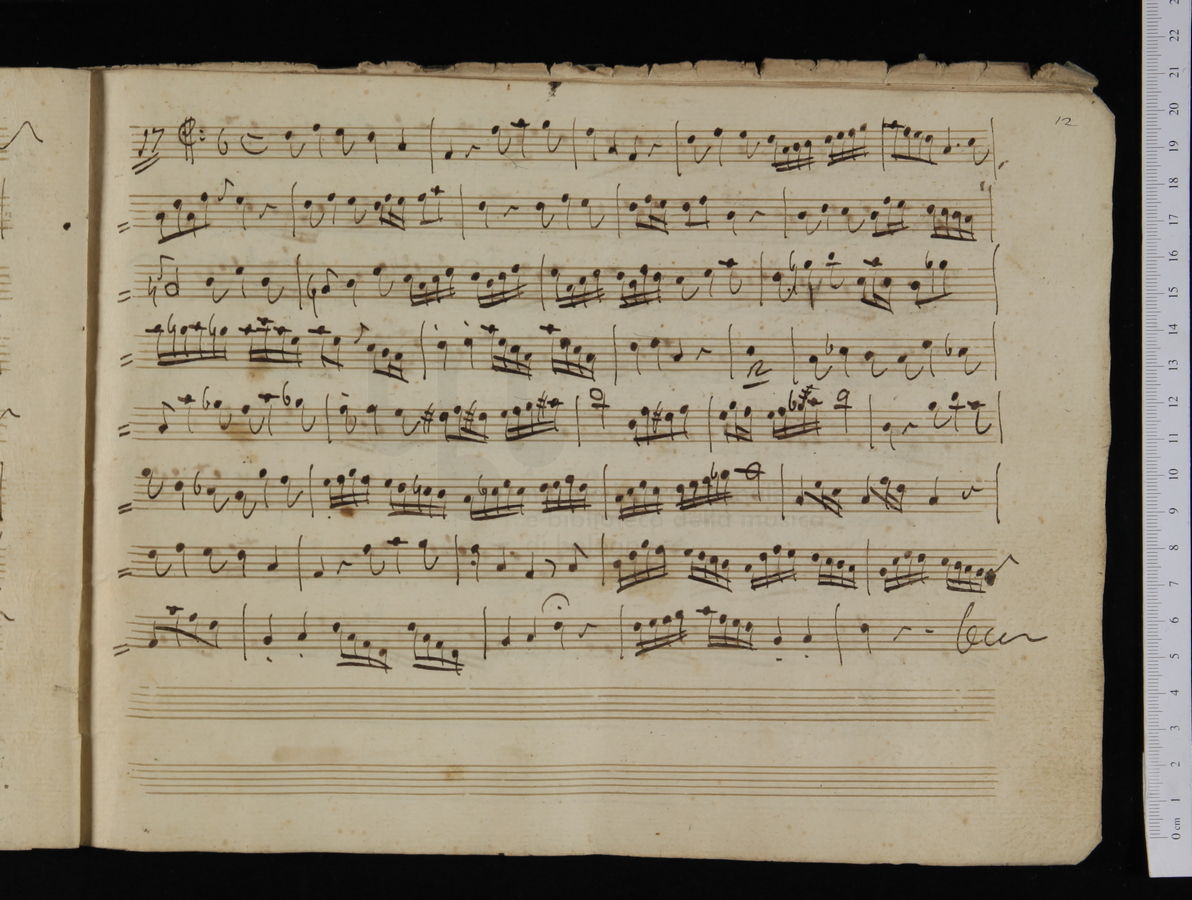 12
17
e biblioteca della musica
di bologna
22
21
20
19
18
17
16
15
14
13
12
11
10
9
8
7
6
5
4
3
2
1
0 cm